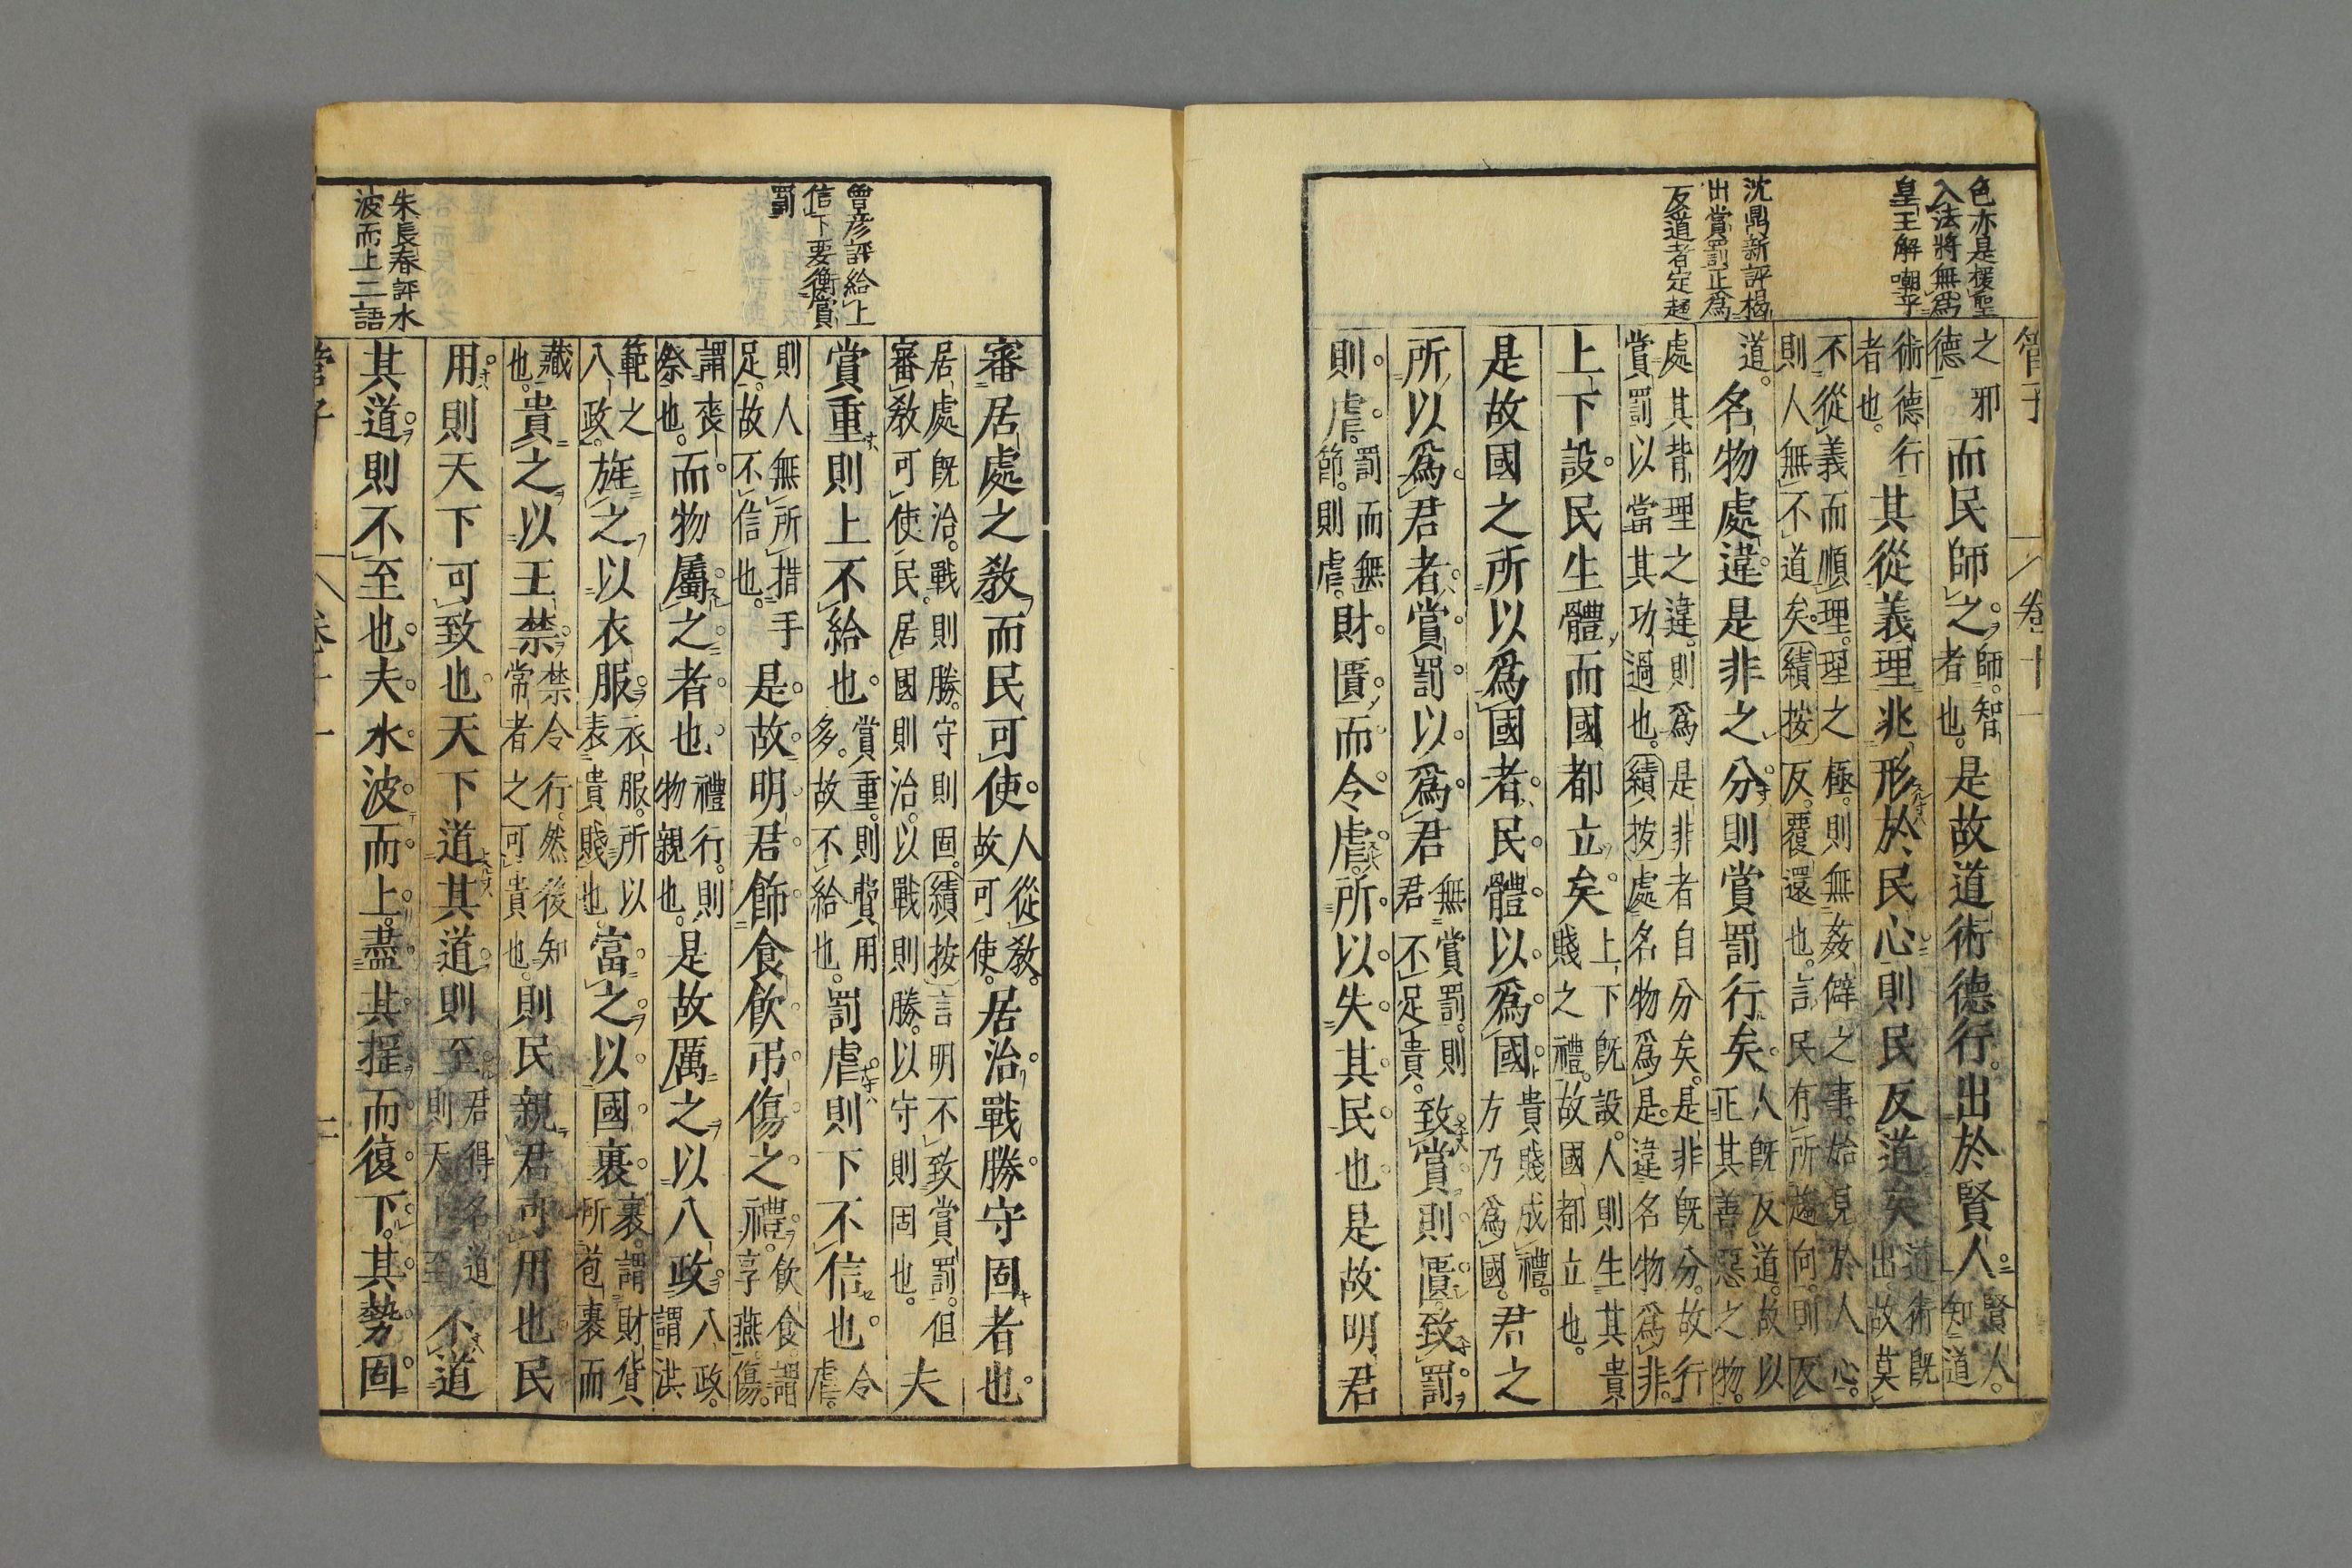 色亦是援聖
入法將無爲
皇王解嘲乎
沈鼎新評揭
出賞罰正爲
反道者定趣
管子 卷十一
之邪德而民師之師。智者也。是故道術德行。出於賢人。賢人。知道
術德行者也。其從義理兆形於民心則民反道矣道術既出故莫
不從義而順理。理之極。則無姦僻之事。始見於人心。
則人無不道矣。績按反。覆還也。言民有所趨向。則反
道。名物處違是非之分則賞罰行矣。人既反道。故以正其善惡之物。
處其背理之違。則爲是非者自分矣。是非既分。故行
賞罰以當其功過也。績按處名物爲是。違名物爲非。
上下設民生體而國都立矣。上下既設。人則生其貴賤之禮。故國都立也。
是故國之所以爲國者。民體以爲國。貴賤成禮。方乃爲國。君之
所以爲君者。賞罰以爲君無賞罰。則君不足貴。致賞則匱。致罰
則虐。罰而無節。則虐。財匱而令虐。所以失其民也是故明君
曾彦評給上
信下要衡賞
罰
朱長春評水
波而上二語
審居處之教而民可使。人從教。故可使。居治戰勝守固者也。
居處既治。戰則勝。守則固。績按言明不致賞罰。但
審教可使民居國則治。以戰則勝。以守則固也。夫
賞重則上不給也。賞重。則費用多。故不給也。罰虐則下不信也。令虐。
則人無所措手足。故不信也。是故明君飾食飲弔傷之禮。飲食。謂享燕。傷。
謂喪祭也。而物屬之者也。禮行。則物親也。是故厲之以八政。八政。謂洪
範之八政。旌之以衣服。衣服。所以表貴賤也。富之以國裹裹。謂財貨所苞裹而
藏也。貴之以王禁。禁令行。然後知常者之可貴也。則民親君可用也民
用。則天下可致也天下道其道則至君得名道則天下至不道
其道。則不至也。夫水波而上。盡其揺而復下。其勢固
管子 卷十一 二